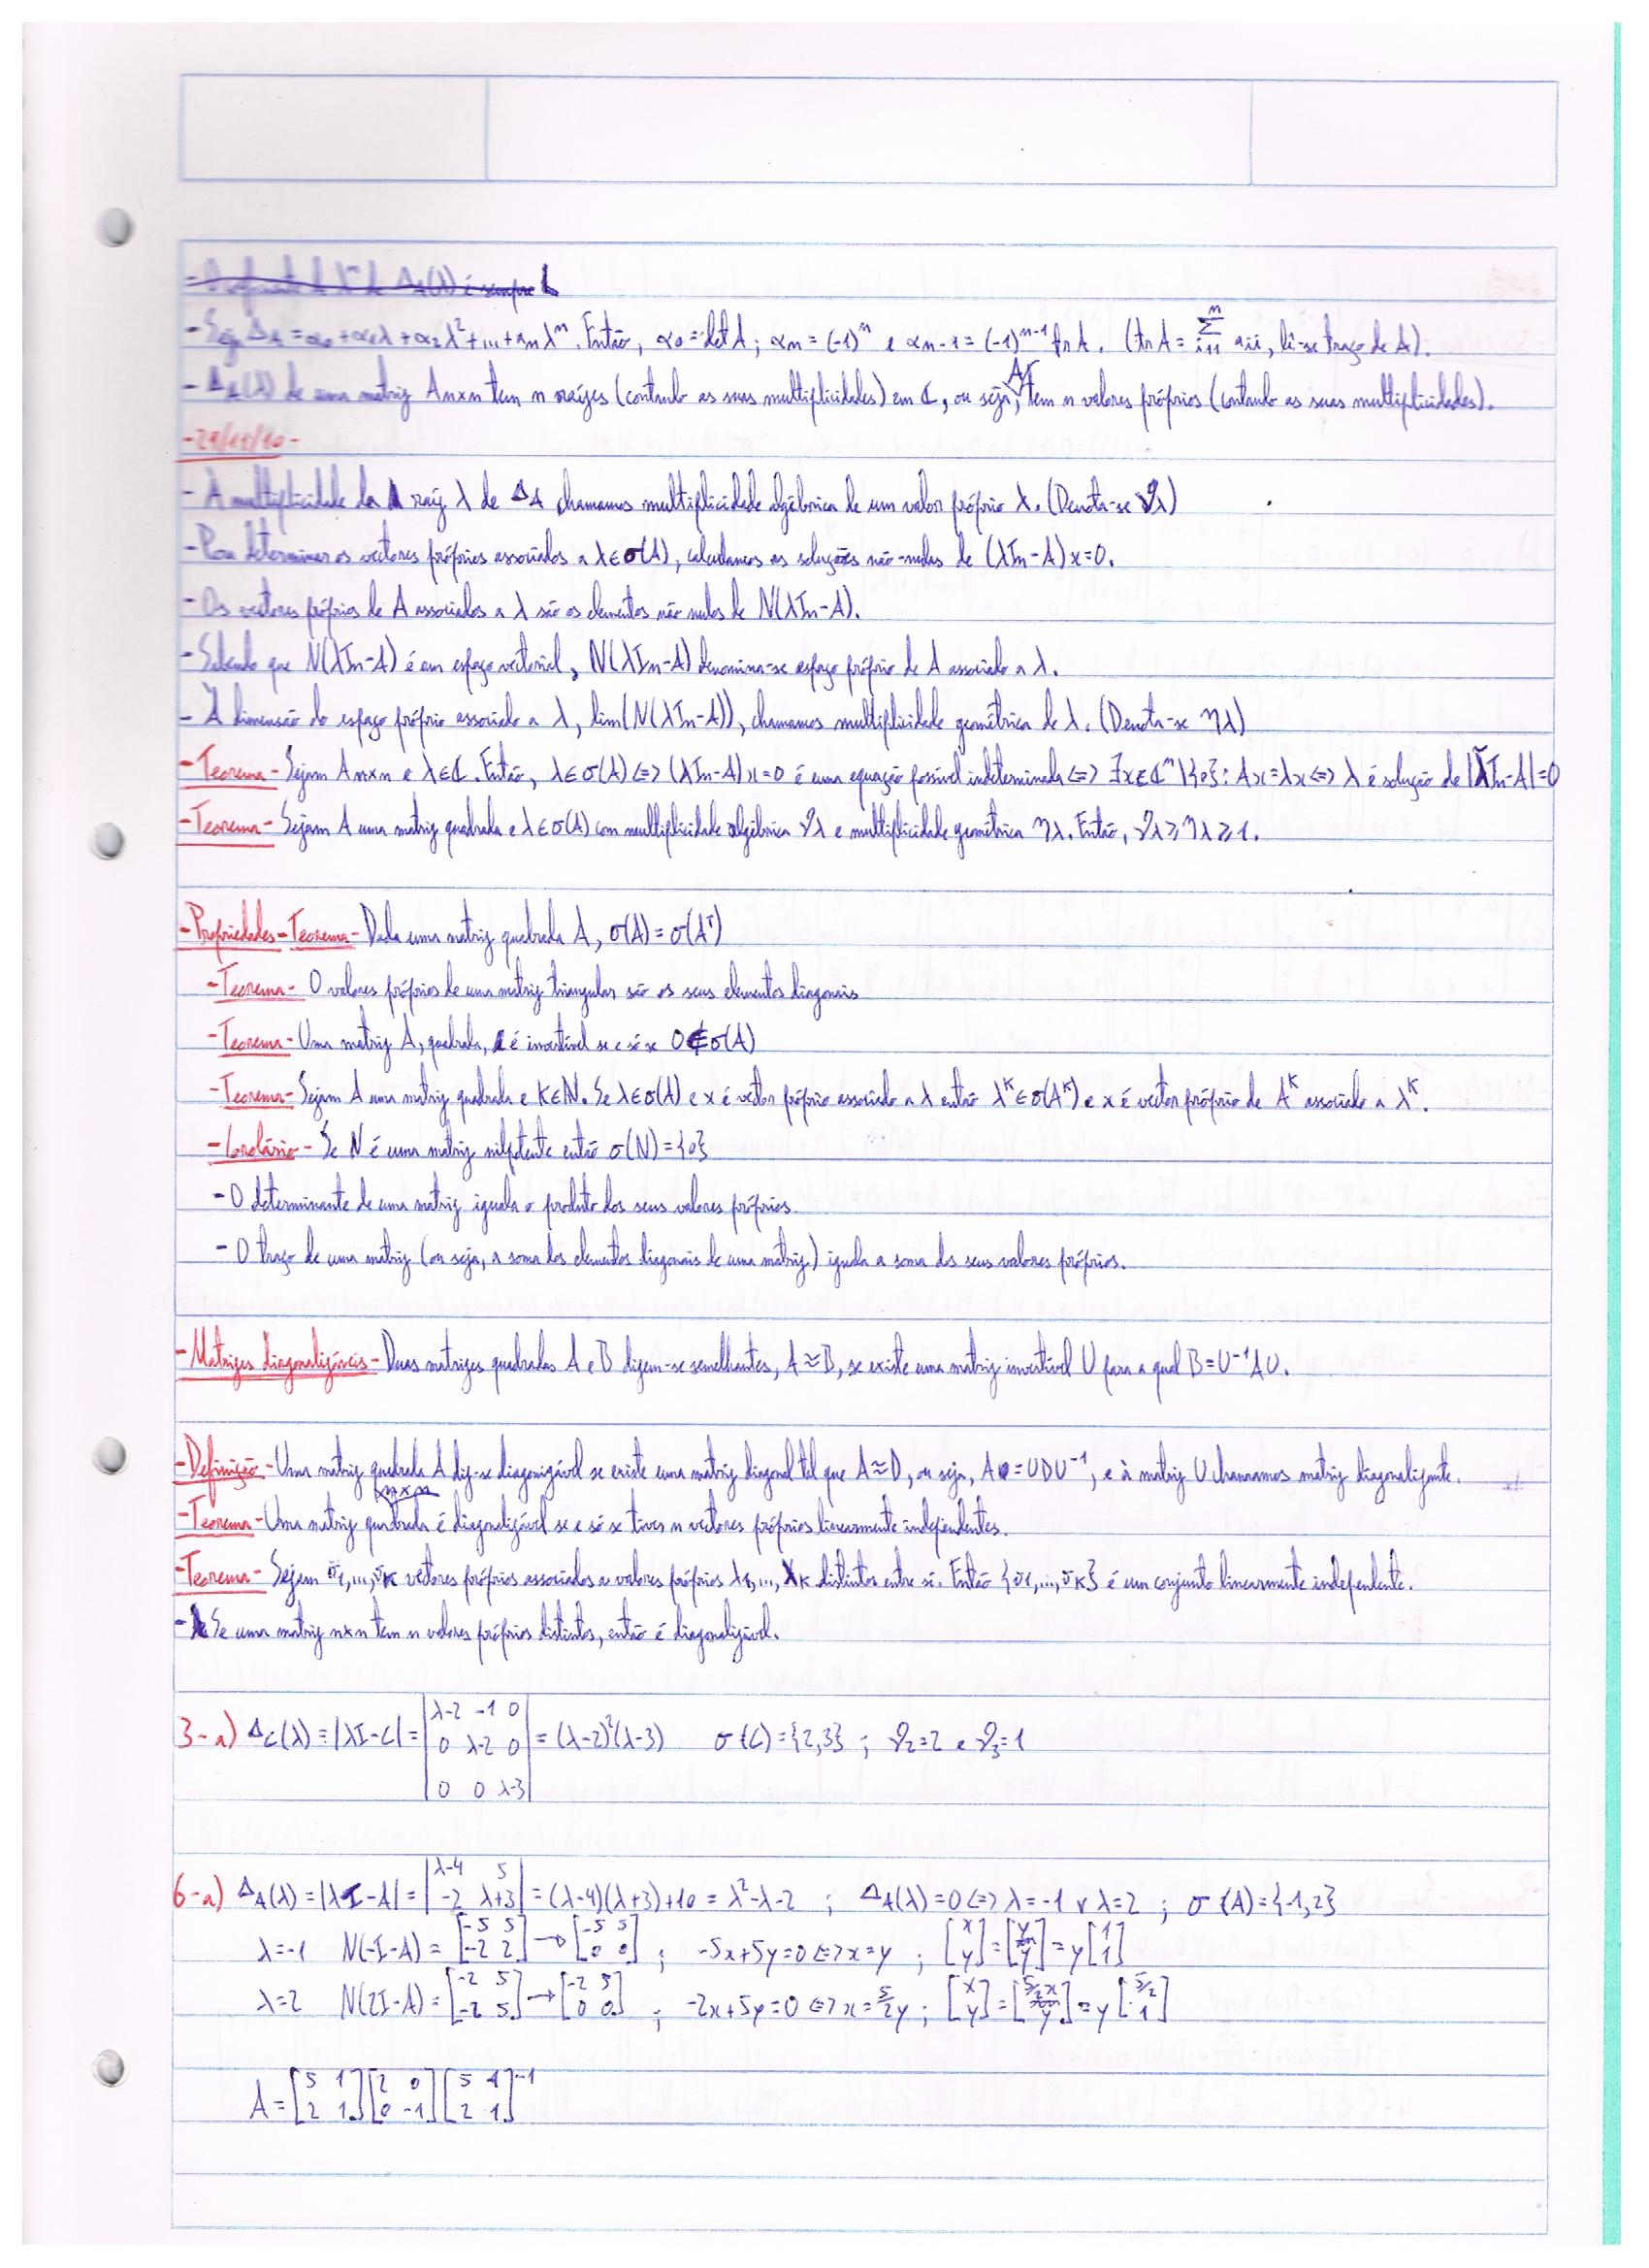 - O coeficiente de λⁿ de Δ_A(λ) é sempre 1
- Seja Δ_A = α₀ + α₁λ + α₂λ² + ... + α_nλⁿ. Então, α₀ = det A; α_n = (-1)ⁿ e α_n-1 = (-1)ⁿ⁻¹ tr A. (tr A = Σ_{i=1}^n a_ii, lê-se traço de A).
- Δ_A(λ) de uma matriz A n×n tem n raízes (contando as suas multiplicidades) em ℂ, ou seja, A tem n valores próprios (contando as suas multiplicidades).
- 29/11/10 -
- À multiplicidade da raiz λ de Δ_A chamamos multiplicidade algébrica de um valor próprio λ. (Denota-se ϑ_λ)
- Para determinar os vectores próprios associados a λ∈σ(A), calculamos as soluções não-nulas de (λI_n-A)x=0.
- Os vectores próprios de A associados a λ são os elementos não nulos de N(λI_n-A).
- Sabendo que N(λI_n-A) é um espaço vectorial, N(λI_n-A) denomina-se espaço próprio de A associado a λ.
- À dimensão do espaço próprio associado a λ, dim(N(λI_n-A)), chamamos multiplicidade geométrica de λ. (Denota-se η_λ)
- Teorema - Sejam A n×n e λ∈ℂ. Então, λ∈σ(A) <=> (λI_n-A)x=0 é uma equação possível indeterminada <=> ∃x∈ℂⁿ\{0}: Ax=λx <=> λ é solução de |λI_n-A|=0
- Teorema - Sejam A uma matriz quadrada e λ∈σ(A) com multiplicidade algébrica ϑ_λ e multiplicidade geométrica η_λ. Então, ϑ_λ ≥ η_λ ≥ 1.
- Propriedades - Teorema - Dada uma matriz quadrada A, σ(A) = σ(Aᵀ)
- Teorema - O valores próprios de uma matriz triangular são os seus elementos diagonais
- Teorema - Uma matriz A, quadrada, é invertível se e só se 0∉σ(A)
- Teorema - Sejam A uma matriz quadrada e K∈ℕ. Se λ∈σ(A) e x é vector próprio associado a λ então λᴷ∈σ(Aᴷ) e x é vector próprio de Aᴷ associado a λᴷ.
- Corolário - Se N é uma matriz nilpotente então σ(N)={0}
- O determinante de uma matriz iguala o produto dos seus valores próprios.
- O traço de uma matriz (ou seja, a soma dos elementos diagonais de uma matriz) iguala a soma dos seus valores próprios.
- Matrizes diagonalizáveis - Duas matrizes quadradas A e B dizem-se semelhantes, A≈B, se existe uma matriz invertível U para a qual B=U⁻¹AU.
- Definição - Uma matriz quadrada A diz-se diagonizável se existe uma matriz diagonal tal que A≈D, ou seja, A=UDU⁻¹, e à matriz U chamamos matriz diagonalizante.
- Teorema - Uma matriz quadrada n×n é diagonalizável se e só se tiver n vectores próprios linearmente independentes.
- Teorema - Sejam v₁,...,v_K vectores próprios associados a valores próprios λ₁,...,λ_K distintos entre si. Então {v₁,...,v_K} é um conjunto linearmente independente.
- Se uma matriz n×n tem n valores próprios distintos, então é diagonalizável.
3-a) Δ_C(λ)=|λI-C|= |λ-2 -1 0; 0 λ-2 0; 0 0 λ-3| = (λ-2)²(λ-3) σ(C)={2,3} ; ϑ₂=2 e ϑ₃=1
6-a) Δ_A(λ)=|λI-A|= |λ-4 5; -2 λ+3| = (λ-4)(λ+3)+10 = λ²-λ-2 ; Δ_A(λ)=0 <=> λ=-1 ∨ λ=2 ; σ(A)={-1,2}
λ=-1 N(-I-A) = [-5 5; -2 2] → [-5 5; 0 0] ; -5x+5y=0 <=> x=y ; [x; y]=[y; y]=y[1; 1]
λ=2 N(2I-A) = [-2 5; -2 5] → [-2 5; 0 0] ; -2x+5y=0 <=> x=5/2 y ; [x; y]=[5/2 x; y]=y[5/2; 1]
A=[5 1; 2 1][2 0; 0 -1][5 1; 2 1]⁻¹